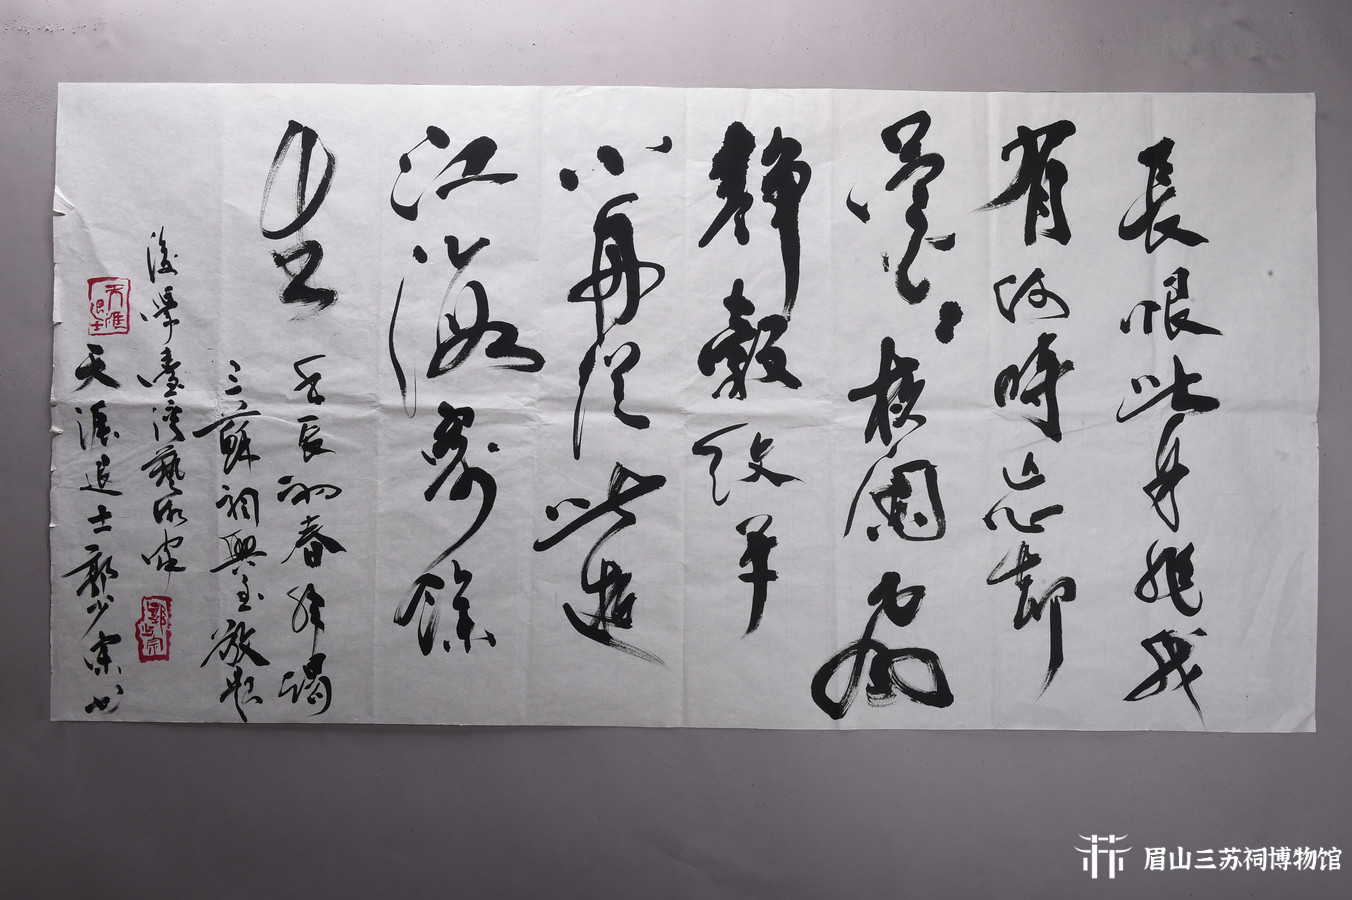 長恨此身非我
有何時忘却
營々夜闌風
靜縠紋平
小舟從此逝
江海寄餘
生
壬辰初春拜謁
三蘇祠興至敬題
後學臺灣藝術家
天涯士郭少宗书
天涯士
郭少宗
眉山三苏祠博物馆